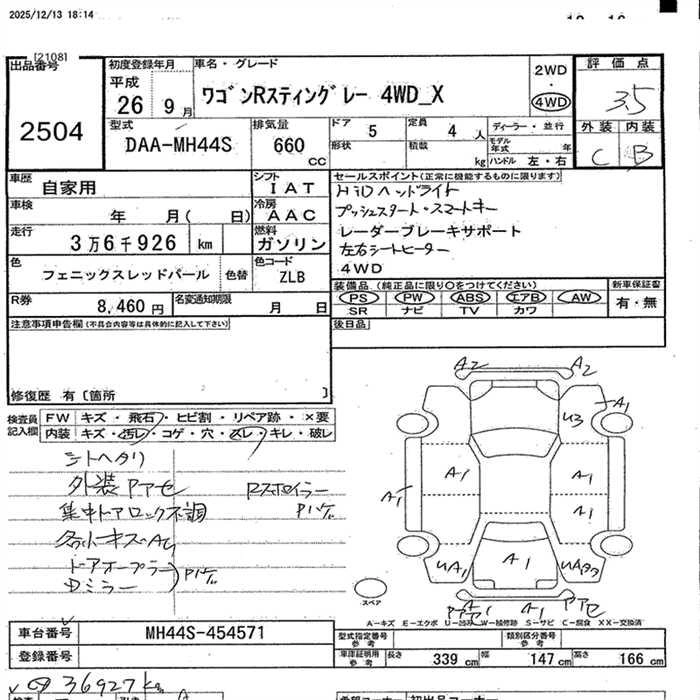 2025/12/13 18:14
[2108]
出品番号 初度登録年月 車名・グレード 2WD・4WD 評価点
2504 平成 26 9月 ワゴンRスティングレー 4WD_X 3.5
型式 DAA-MH44S 排気量 660 CC ドア 5 定員 4 人 ディーラー・並行 外装 内装
形状 積載 kg モデル年式 年 ハンドル 左・右 C B
車歴 自家用 シフト IAT セールスポイント(正常に機能するものに限ります)
車検 年 月( 日) 冷房 AAC HiDヘッドライト
プッシュスタート・スマートキー
走行 3万6千926 km 燃料 ガソリン レーダーブレーキサポート
左右シートヒーター
色 フェニックスレッドパール 色替 色コード ZLB 4WD
装備品 (純正品に限り○をつけてください) 新車保証書
R券 8,460円 名変通知期限 月 日 PS PW ABS エアB AW 有・無
SR ナビ TV カワ
注意事項申告欄(不具合内容等は具体的に記入して下さい) 後日品
修復歴 有 [箇所 ]
検査員記入欄 FW キズ・飛石・ヒビ割・リペア跡・×要
内装 キズ・汚レ・コゲ・穴・スレ・キレ・破レ
A2 A2
U3 A1
シートヘタリ
外装Pアセ Rスポイラー
集中ドアロック不調 Pハゲ
A1 A1 A1
A1
各ドアキズA1
ドアオープラー
Dミラー Pハゲ
UA1 A1
スペア
A1 Pアセ
A-キズ E-エクボ U-凹み W-補修跡 S-サビ C-腐食 XX-交換済
車台番号 MH44S-454571 型式指定番号 参考 類別区分番号 参考
登録番号 車庫証明用 参考 長さ 339 cm 幅 147 cm 高さ 166 cm
36927km